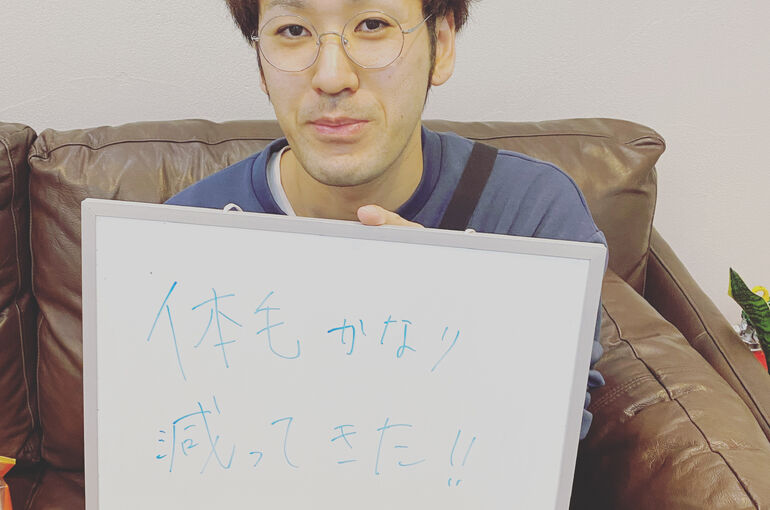 体毛かなり
減ってきた!!